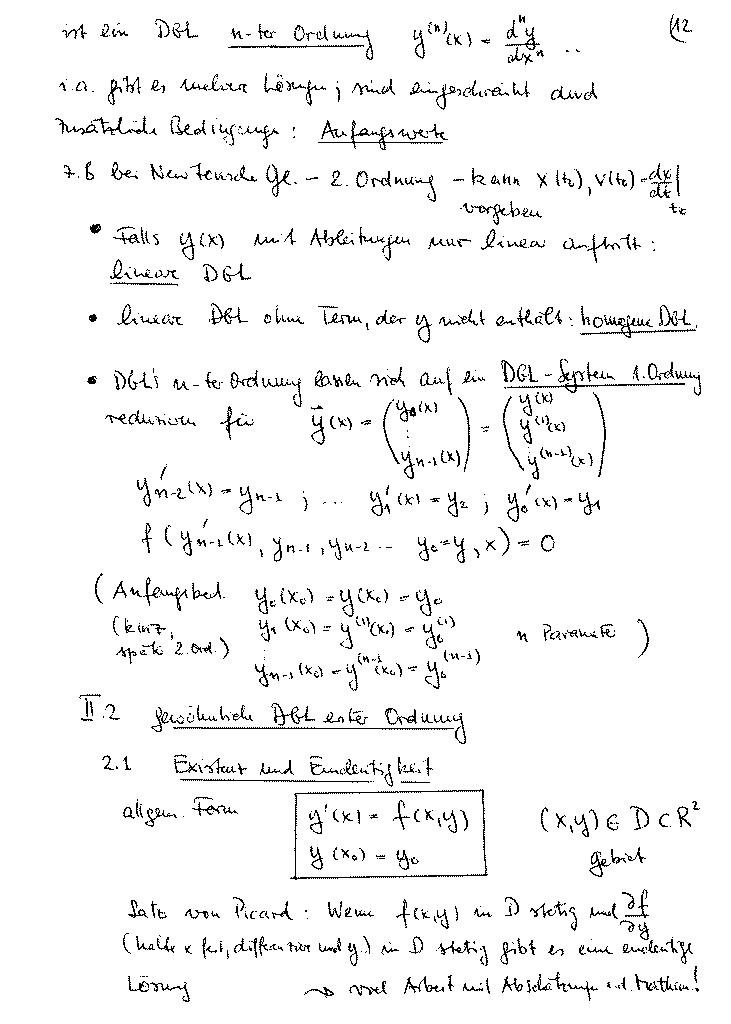 ist ein DGL n-ter Ordnung y⁽ⁿ⁾(x) = dⁿy/dxⁿ .. (12
i.a. gibt es mehrere Lösungen; sind eingeschränkt durch
zusätzliche Bedingungen: Anfangswerte
z.B bei Newtonsche Gl. – 2. Ordnung – kann x(t₀), v(t₀) = dx/dt|t₀
vorgeben
• Falls y(x) mit Ableitungen nur linear auftritt:
linear DGL
• lineare DGL ohne Term, der y nicht enthält: homogene DGL.
• DGL's n-ter Ordnung lassen sich auf ein DGL-System 1. Ordnung
reduzieren für y⃗(x) = (y₀(x) ⋮ yₙ₋₁(x)) = (y(x) y⁽¹⁾(x) y⁽ⁿ⁻¹⁾(x))
y'ₙ₋₂(x) = yₙ₋₁ ; ... y₁'(x) = y₂ ; y₀'(x) = y₁
f(y'ₙ₋₁(x), yₙ₋₁, yₙ₋₂ ... y₀=y, x) = 0
(Anfangsbed. y₀(x₀) = y(x₀) = y₀
(kurz, y₁(x₀) = y⁽¹⁾(x₀) = y₀⁽¹⁾ n Parameter )
später 2. Ord.) ⋮
yₙ₋₁(x₀) = y⁽ⁿ⁻¹⁾(x₀) = y₀⁽ⁿ⁻¹⁾
II.2 gewöhnliche DGL erster Ordnung
2.1 Existenz und Eindeutigkeit
allgem. Form y'(x) = f(x,y) (x,y) ∈ D ⊂ R²
y(x₀) = y₀ Gebiet
Satz von Picard: Wenn f(x,y) in D stetig und ∂f/∂y
(halte x fest, differenziere nach y.) in D stetig gibt es eine eindeutige
Lösung → viel Arbeit mit Abschätzungen i.d. Mathem.!